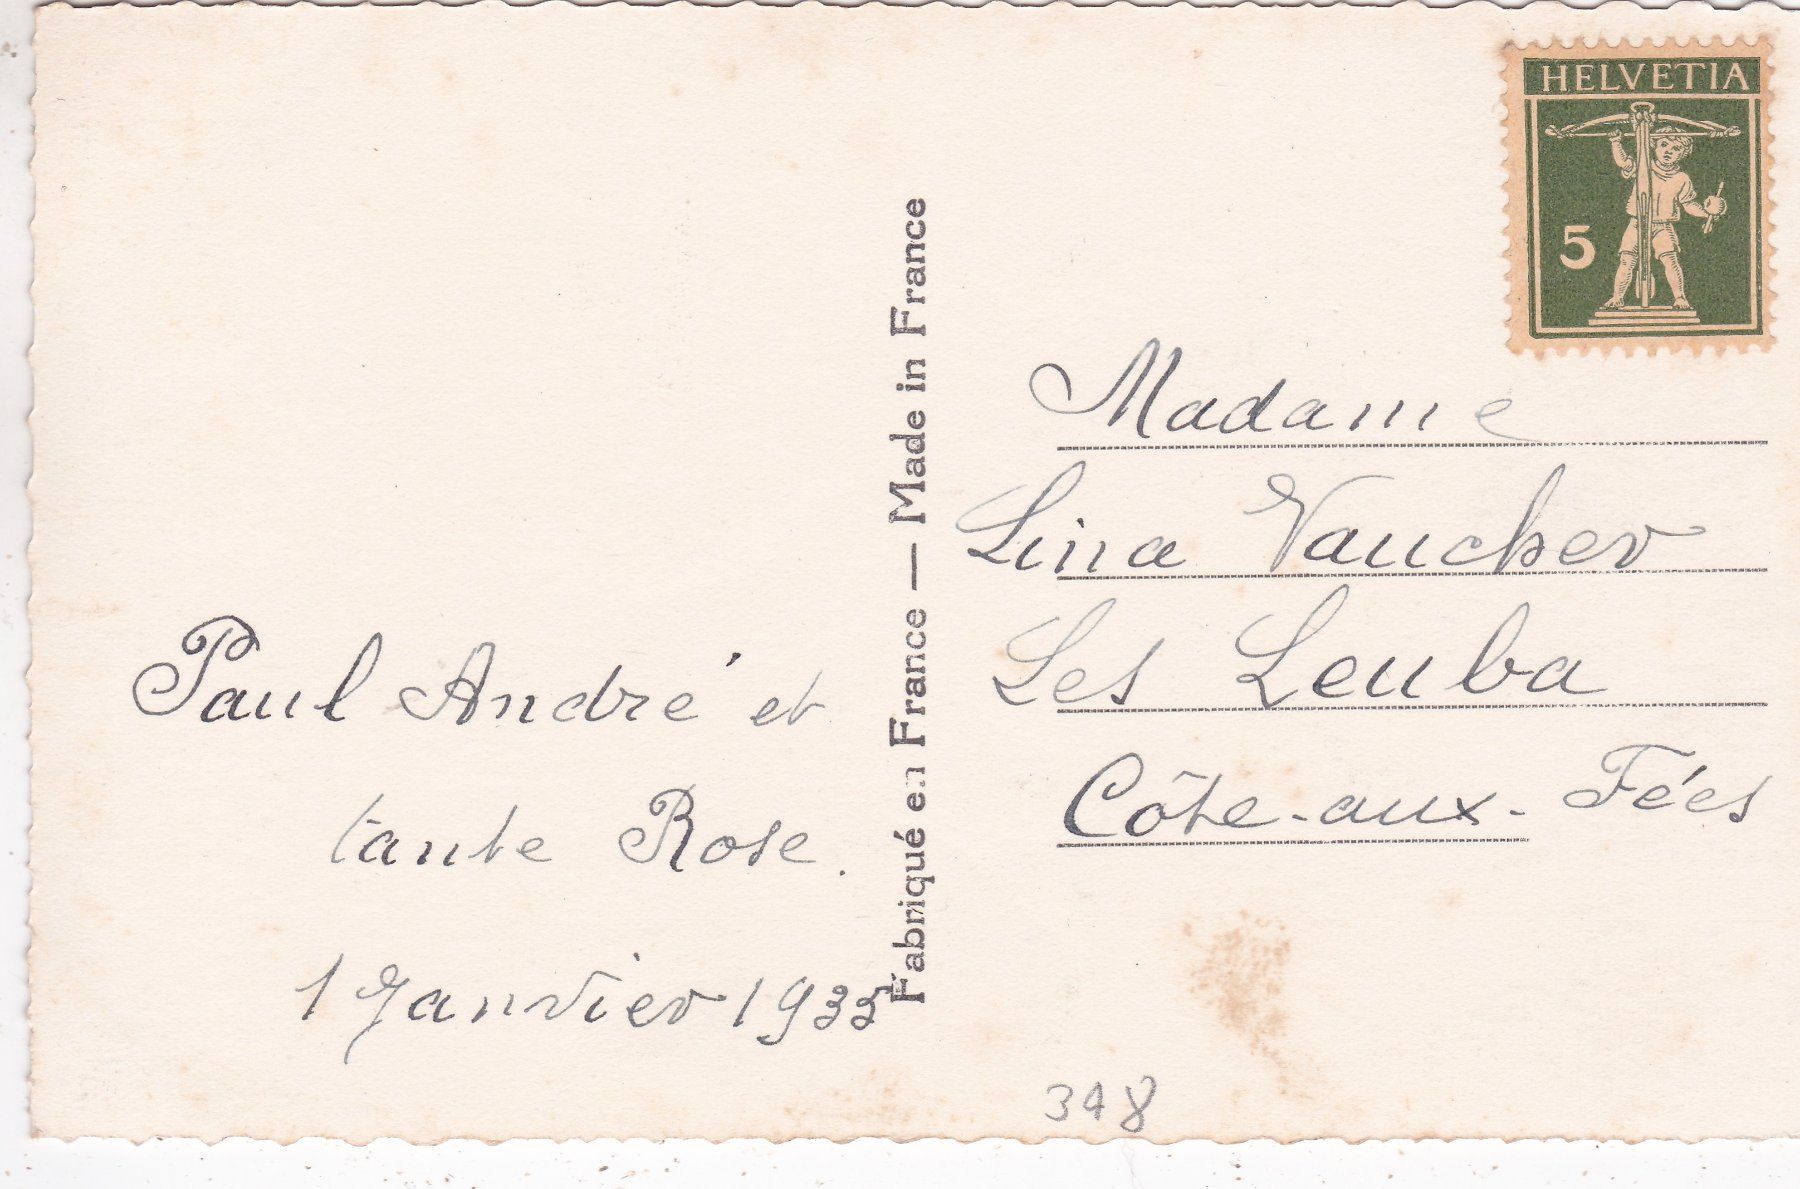 HELVETIA
5
Madame
Lina Vaucher
Les Leuba
Côte-aux-Fées
Paul André et
tante Rose.
1 Janvier 1935
Fabriqué en France — Made in France
348